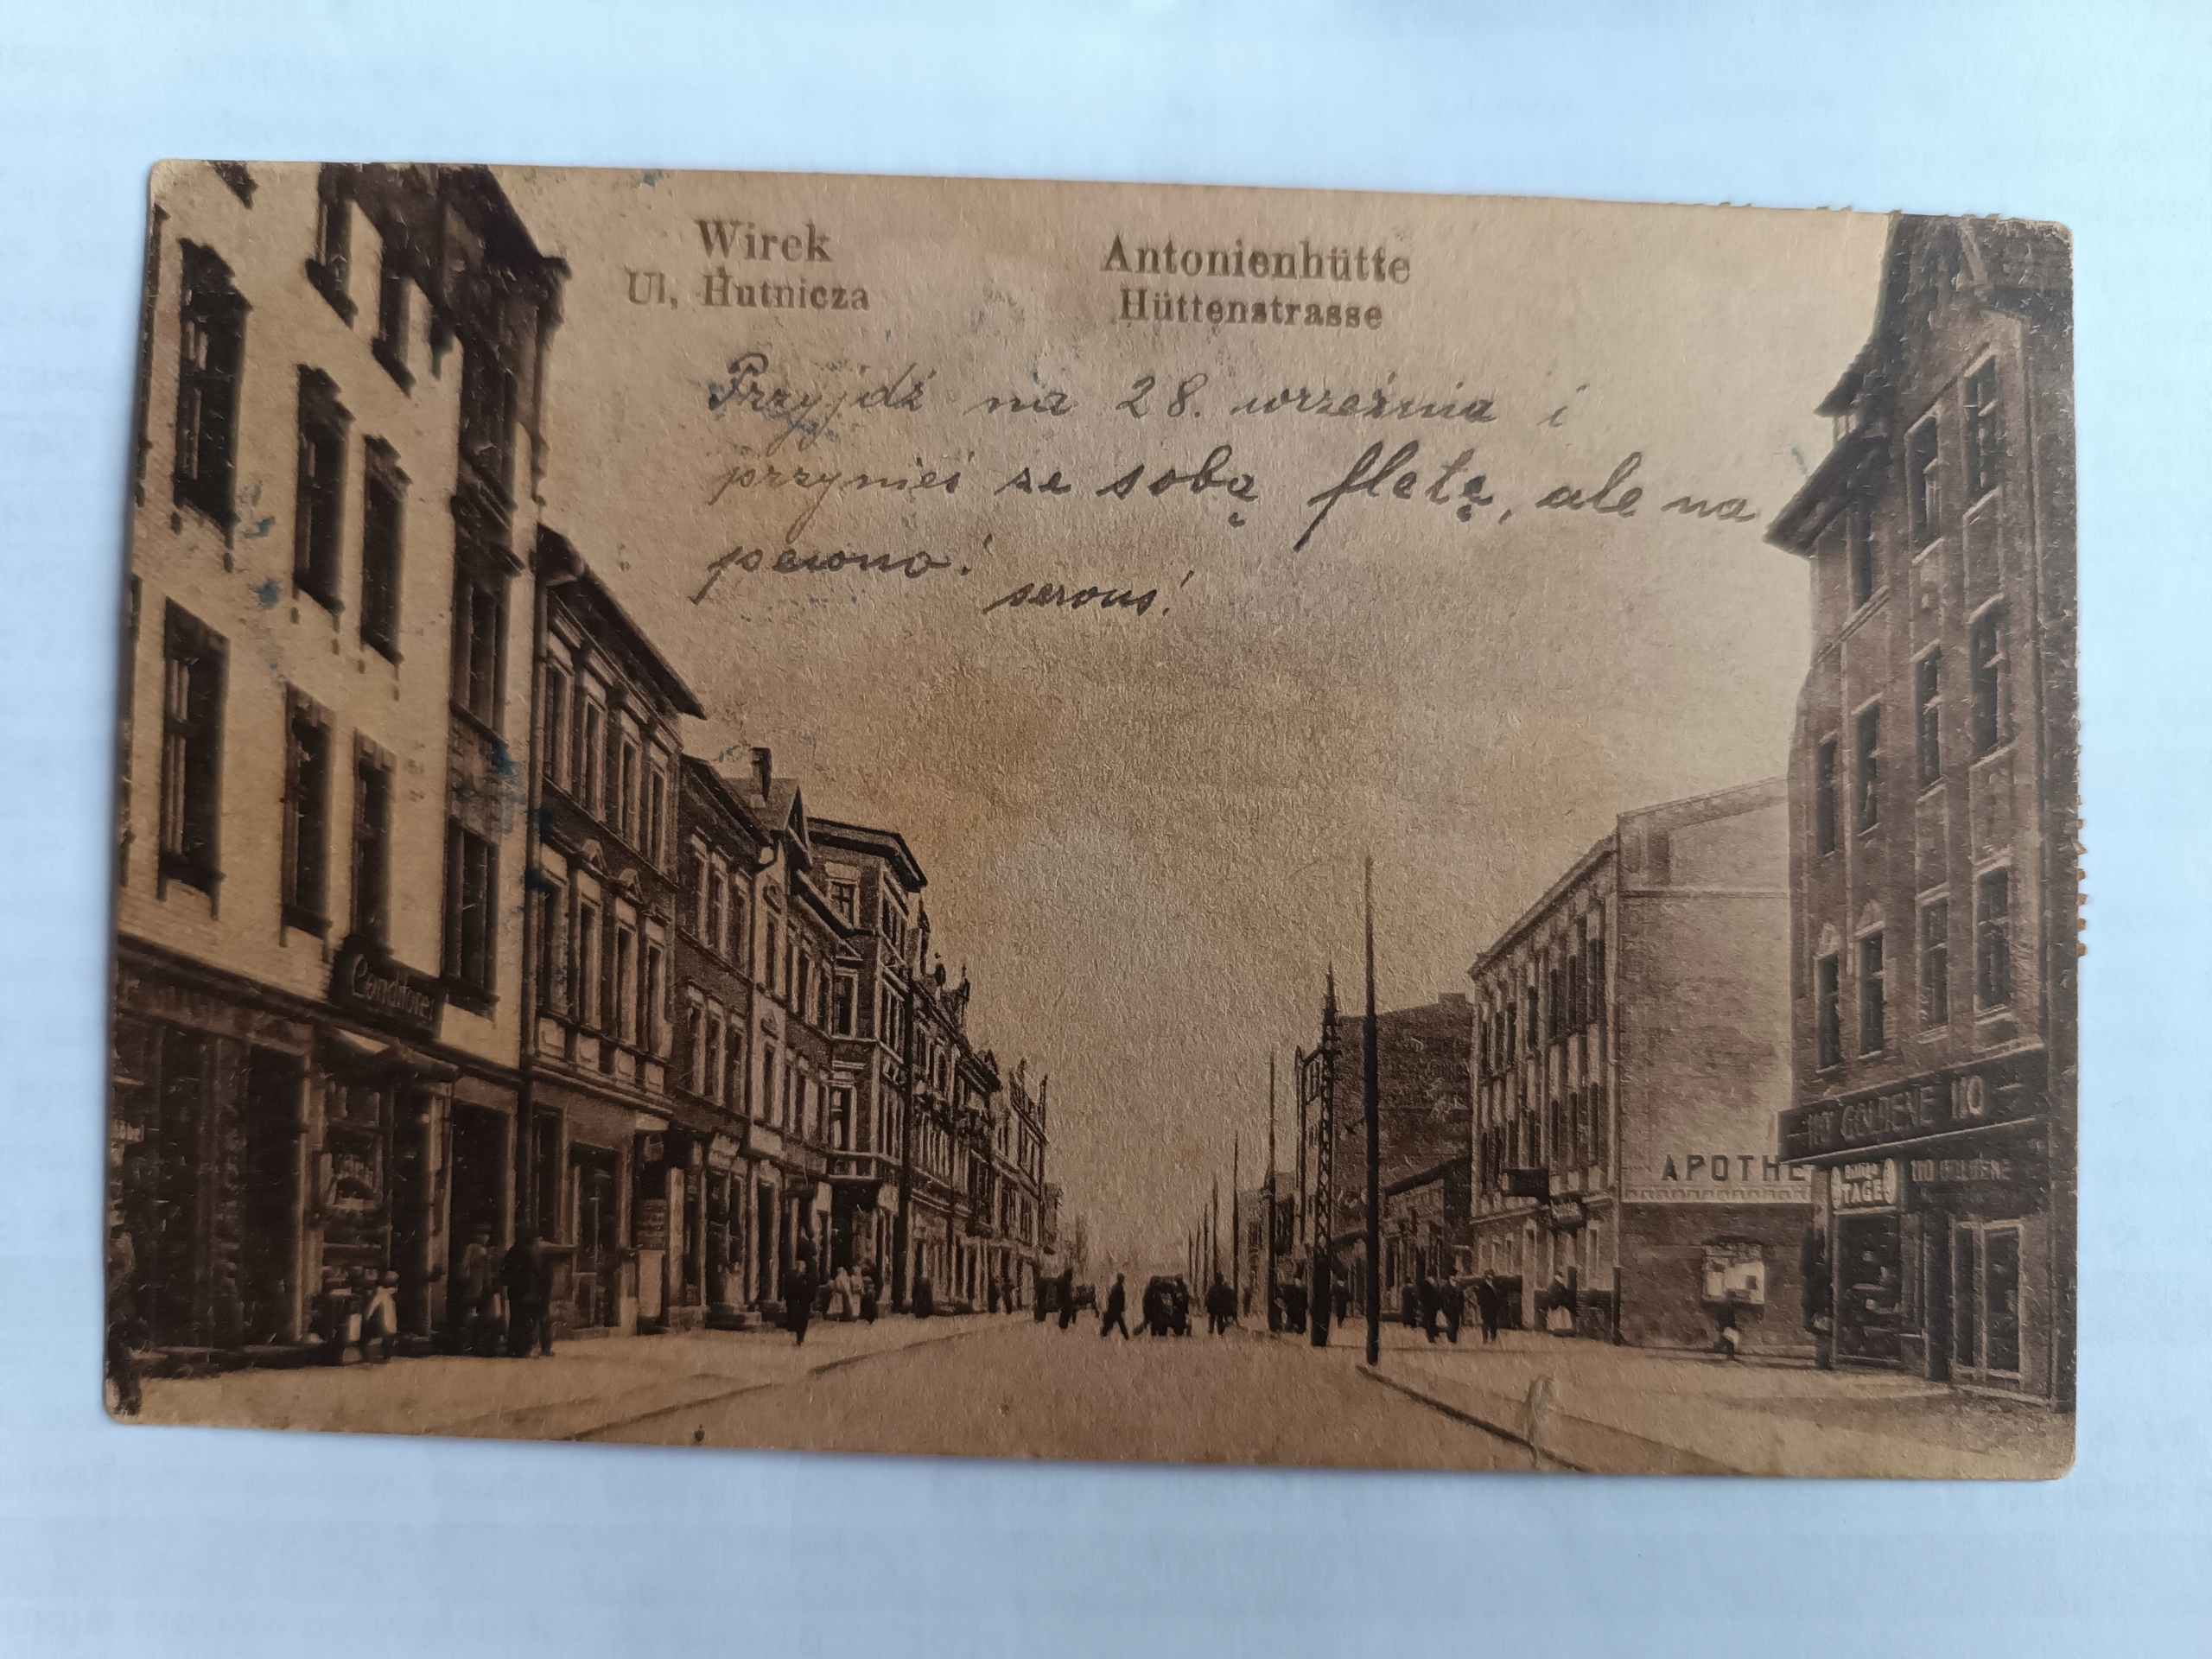 Wirek
Ul, Hutnicza
Antonienhütte
Hüttenstrasse
Przyjdź na 28. września i
przynieś ze sobą fletę, ale na
pewno!
serwus!
Conditorei
APOTHE
110 GOLDENE 110
Billige
TAGE
110 GOLDENE